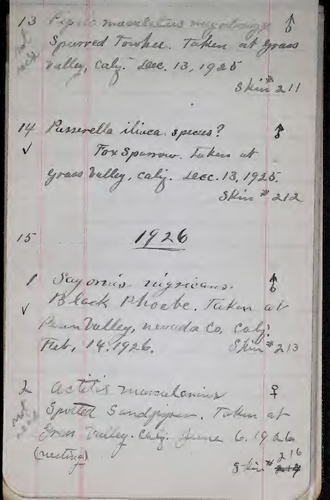 13 Pipilo maculatus
Spurred Towhee. Taken at Grass
Valley, Calif. Dec. 13, 1925
Skin # 211
14 Passerella iliaca species?
✓ Fox Sparrow. Taken at
Grass Valley, Calif. Dec. 13, 1925.
Skin # 212
15 1926
1 Sayornis nigricans.
✓ Black Phoebe. Taken at
Penn Valley, Nevada Co. Calif.
Feb. 14. 1926. Skin # 213
2 Actitis macularius ♀
Spotted Sandpiper. Taken at
Grass Valley. Calif. June 6. 1926
(nesting) 216
Skin #